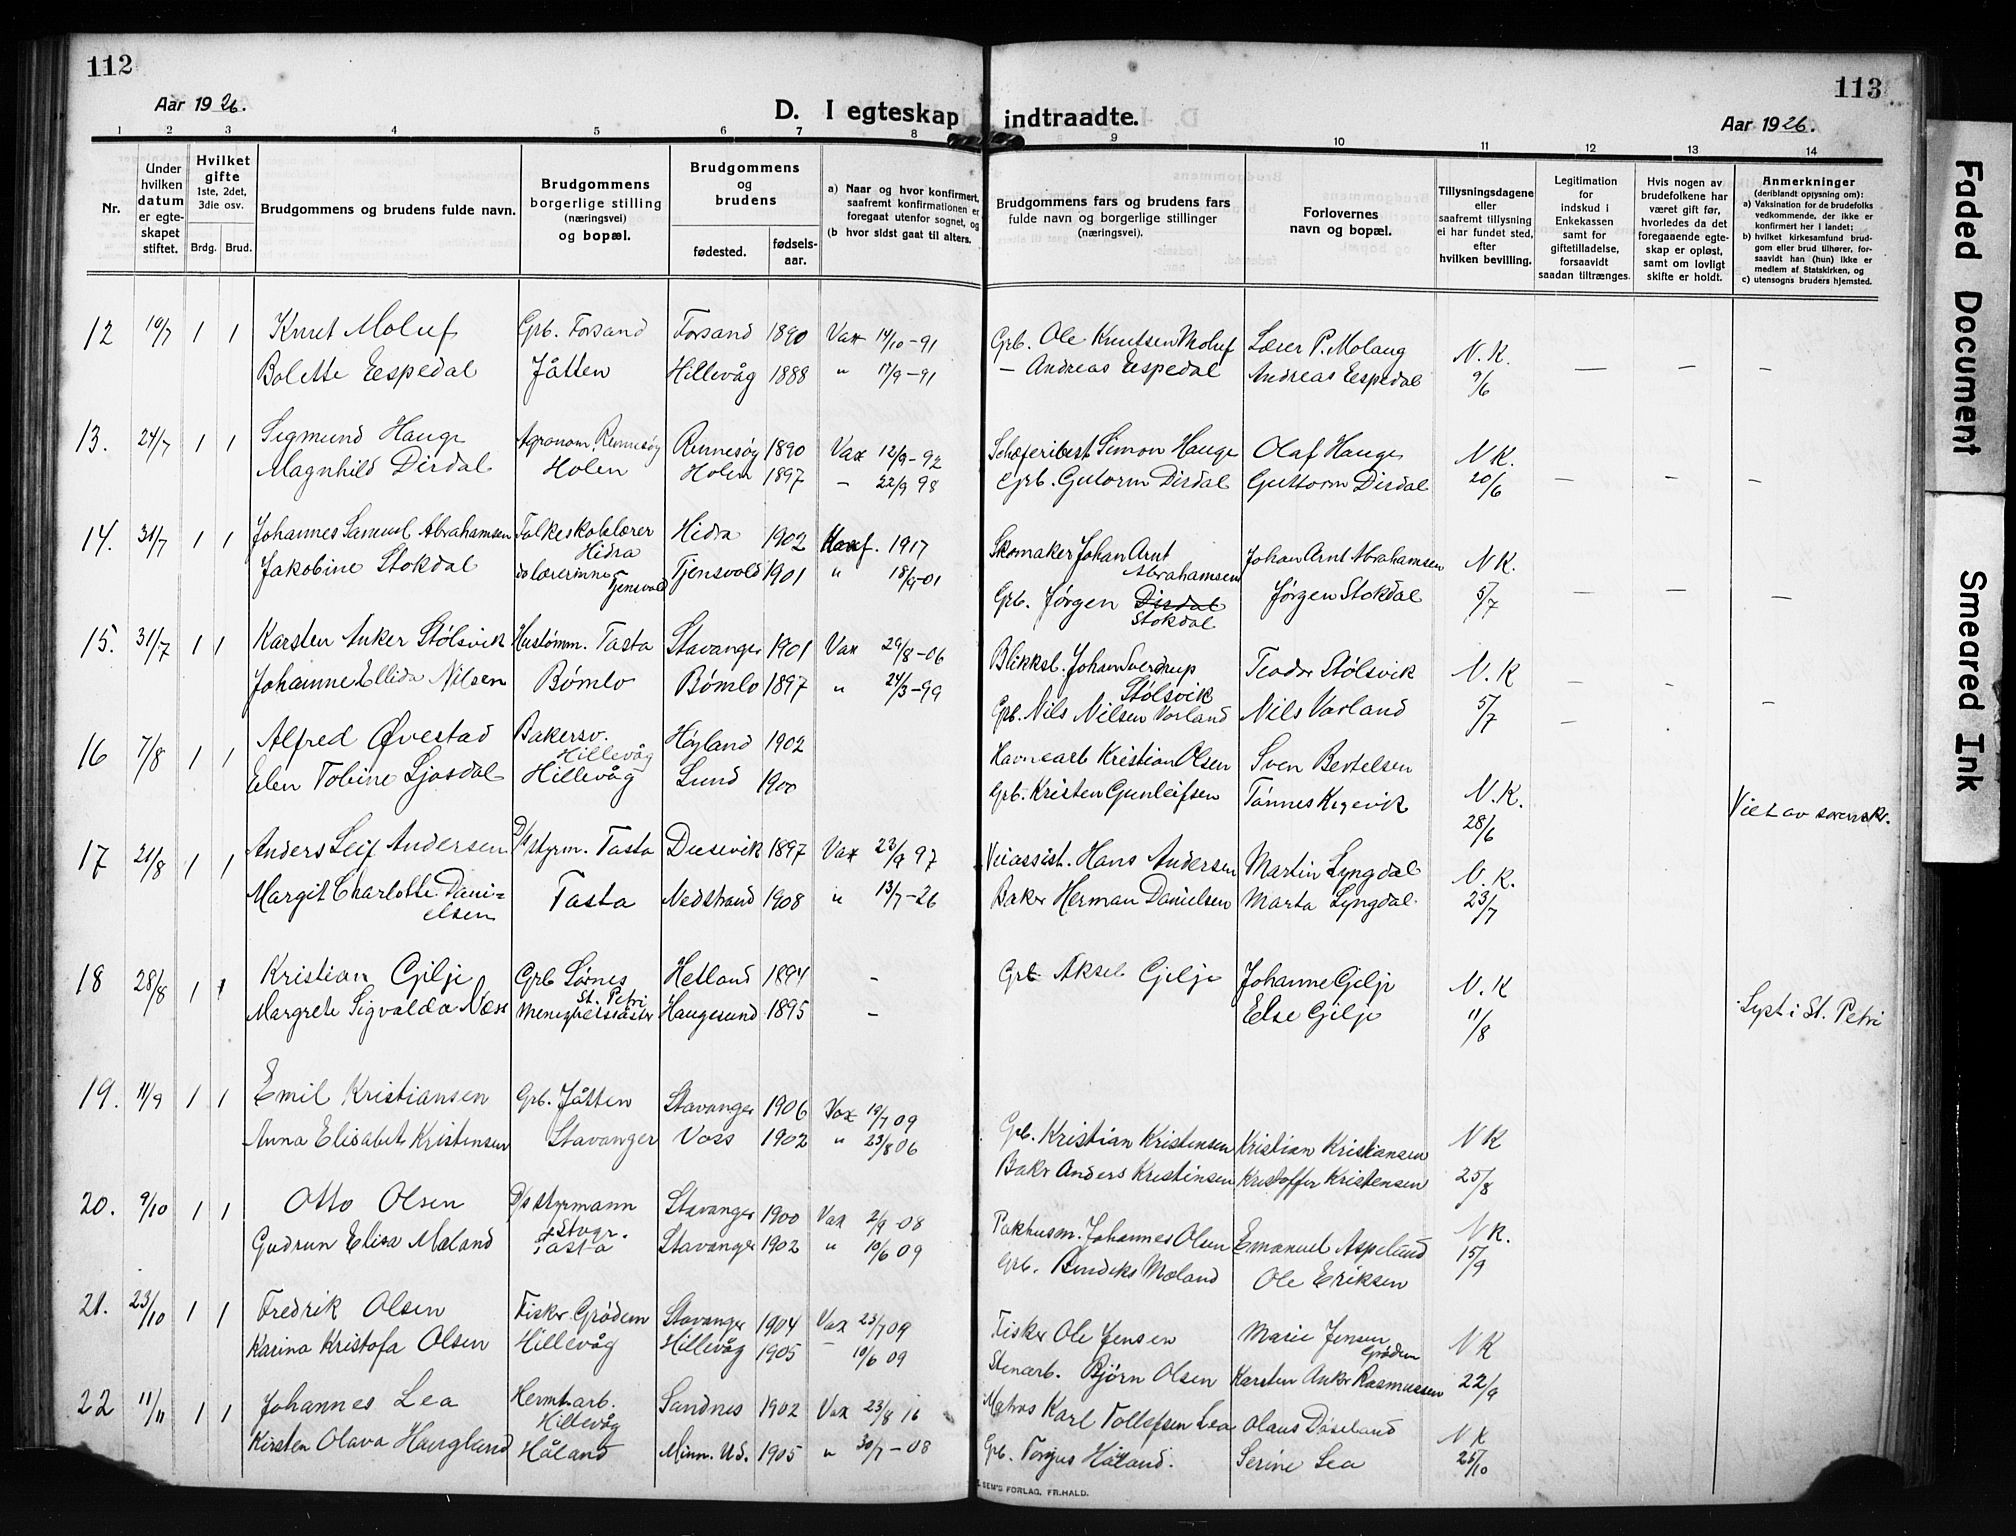 112
113
Aar 1926.
D. I egteskap indtraadte.
Aar 1926.
1 2 3 4 5 6 7 8 9 10 11 12 13 14
Nr.
Under hvilken datum er egteskapet stiftet.
Hvilket gifte 1ste, 2det, 3die osv.
Brdg. Brud.
Brudgommens og brudens fulde navn.
Brudgommens borgerlige stilling (næringsvei) og bopæl.
Brudgommens og brudens
fødested.
fødselsaar.
a) Naar og hvor konfirmert, saafremt konfirmationen er foregaat utenfor sognet, og
(b hvor sidst gaat til alters.
Brudgommens fars og brudens fars fulde navn og borgerlige stillinger (næringsvei).
Forlovernes navn og bopæl.
Tillysningsdagene eller saafremt tillysning ei har fundet sted, efter hvilken bevilling.
Legitimation for indskud i Enkekassen samt for giftetilladelse, forsaavidt saadan tiltrænges.
Hvis nogen av brudefolkene har været gift før, hvorledes da det foregaaende egteskap er opløst, samt om lovligt skifte er holdt.
Anmerkninger (deriblandt opysning om):
a) Vaksination for de brudefolks vedkommende, der ikke er konfirmert her i landet;
b) hvilket kirkesamfund brudgom eller brud tilhører, forsaavidt han (hun) ikke er medlem af Statskirken, og
c) utensogns bruders hjemsted.
12 10/7 1 1 Knut Moluf Grb. Forsand Forsand 1890 Vax 14/10-91 Grb. Ole Knutsen Moluf Lærer P. Molaug N. K.
Bolette Espedal Jåtten Hillevåg 1888 " 17/9-91 – Andreas Espedal Andreas Espedal 9/6 — – –
13. 24/7 1 1 Sigmund Hauge Agronom Rennesøy Rennesøy 1890 Vax 12/9-92 Simon Hauge Olaf Hauge N K.
Magnhild Dirdal Holen Holen 1897 – 22/9 98 Grb. Gutorm Dirdal Guttorm Dirdal 20/6 – – –
14. 31/7 1 1 Johannes Samuel Abrahamsen Folkeskolelærer Hidra Hidra 1902 Konf. 1917 Skomaker Johan Arnt Abrahamsen Johan Arnt Abrahamsen N K.
Jakobine Stokdal do lærerinne Tjensvold Tjensvold 1901 " 18/9-01 Grb. Jørgen Dirdal Stokdal Jørgen Stokdal 5/7 – – –
15. 31/7 1 1 Karsten Anker Stølsvik Hustømm. Tasta Stavanger 1901 Vax 29/8-06 Blikksl. Johan Sverdrup Stølsvik Teodor Stølsvik N. K
Johanne Ellida Nilsen Bømlo Bømlo 1897 " 24/3-99 Grb. Nils Nilsen Vorland Nils Varland 5/7 – – –
16 7/8 1 1 Alfred Øvestad Bakersv. Hillevåg Høyland 1902 Havnearb Kristian Olsen Sven Bertelsen N. K.
Elen Tobine Ljosdal Hillevåg Lund 1900 Grb. Kristen Gunleifsen Tønnes 28/6 Viet av sorenskr.
17 21/8 1 1 Anders Leif Andersen D/s styrm. Tasta Dusevik 1897 Vax 23/9 97 Veiassist. Hans Andersen Martin Lyngdal N. K.
Margit Charlotte Danielsen Tasta Nedstrand 1908 " 13/7-26 Baker Herman Danielsen Marta Lyngdal 23/7
18 28/8 1 1 Kristian Gilje Grb Sørnes Hetland 1894 – Grb Aksel Gilje Johanne Gilje N. K
Margrete Sigvalda Næss St. Petri Menighetssøster Haugesund 1895 – Else Gilje 11/8 Lyst i St. Petri
19. 11/9 1 1 Emil Kristiansen Grb. Jåtten Stavanger 1906 Vax 19/7 09 Grb. Kristian Kristensen Kristian Kristiansen N K
Anna Elisabet Kristensen Stavanger Voss 1902 " 23/8 06 Baker Anders Kristensen Kristoffer Kristensen 25/8
20. 9/10 1 1 Otto Olsen D/s styrmann Stvgr. Stavanger 1900 Vax 2/9-08 Pakhusm. Johannes Olsen Emanuel Aspelund N K.
Gudrun Elisa Mæland Tasta Stavanger 1902 " 10/6 09 Grb. Bendiks Mæland Ole Eriksen 15/9
21. 23/10 1 1 Fredrik Olsen Fisker Grødem Stavanger 1904 Vax 23/7 09 Fisker Ole Jensen Marie Jensen Grødem N K
Karina Kristofa Olsen Hillevåg Hillevåg 1905 – 10/6 09 Stenarb. Bjørn Olsen Karsten Anker Rasmussen 22/9
22 11/11 1 1 Johannes Lea Hermt.arb. Hillevåg Sandnes 1902 Vax 23/8 16 Matros Karl Tollefsen Lea Olaus Døseland N K
Kirsten Olava Haugland Håland Minn. U.S. 1905 " 30/7-08 Grb. Torgus Håland. Serine Lea 25/10
SEM'S FORLAG, FR.HALD.
Faded Document
Smeared Ink